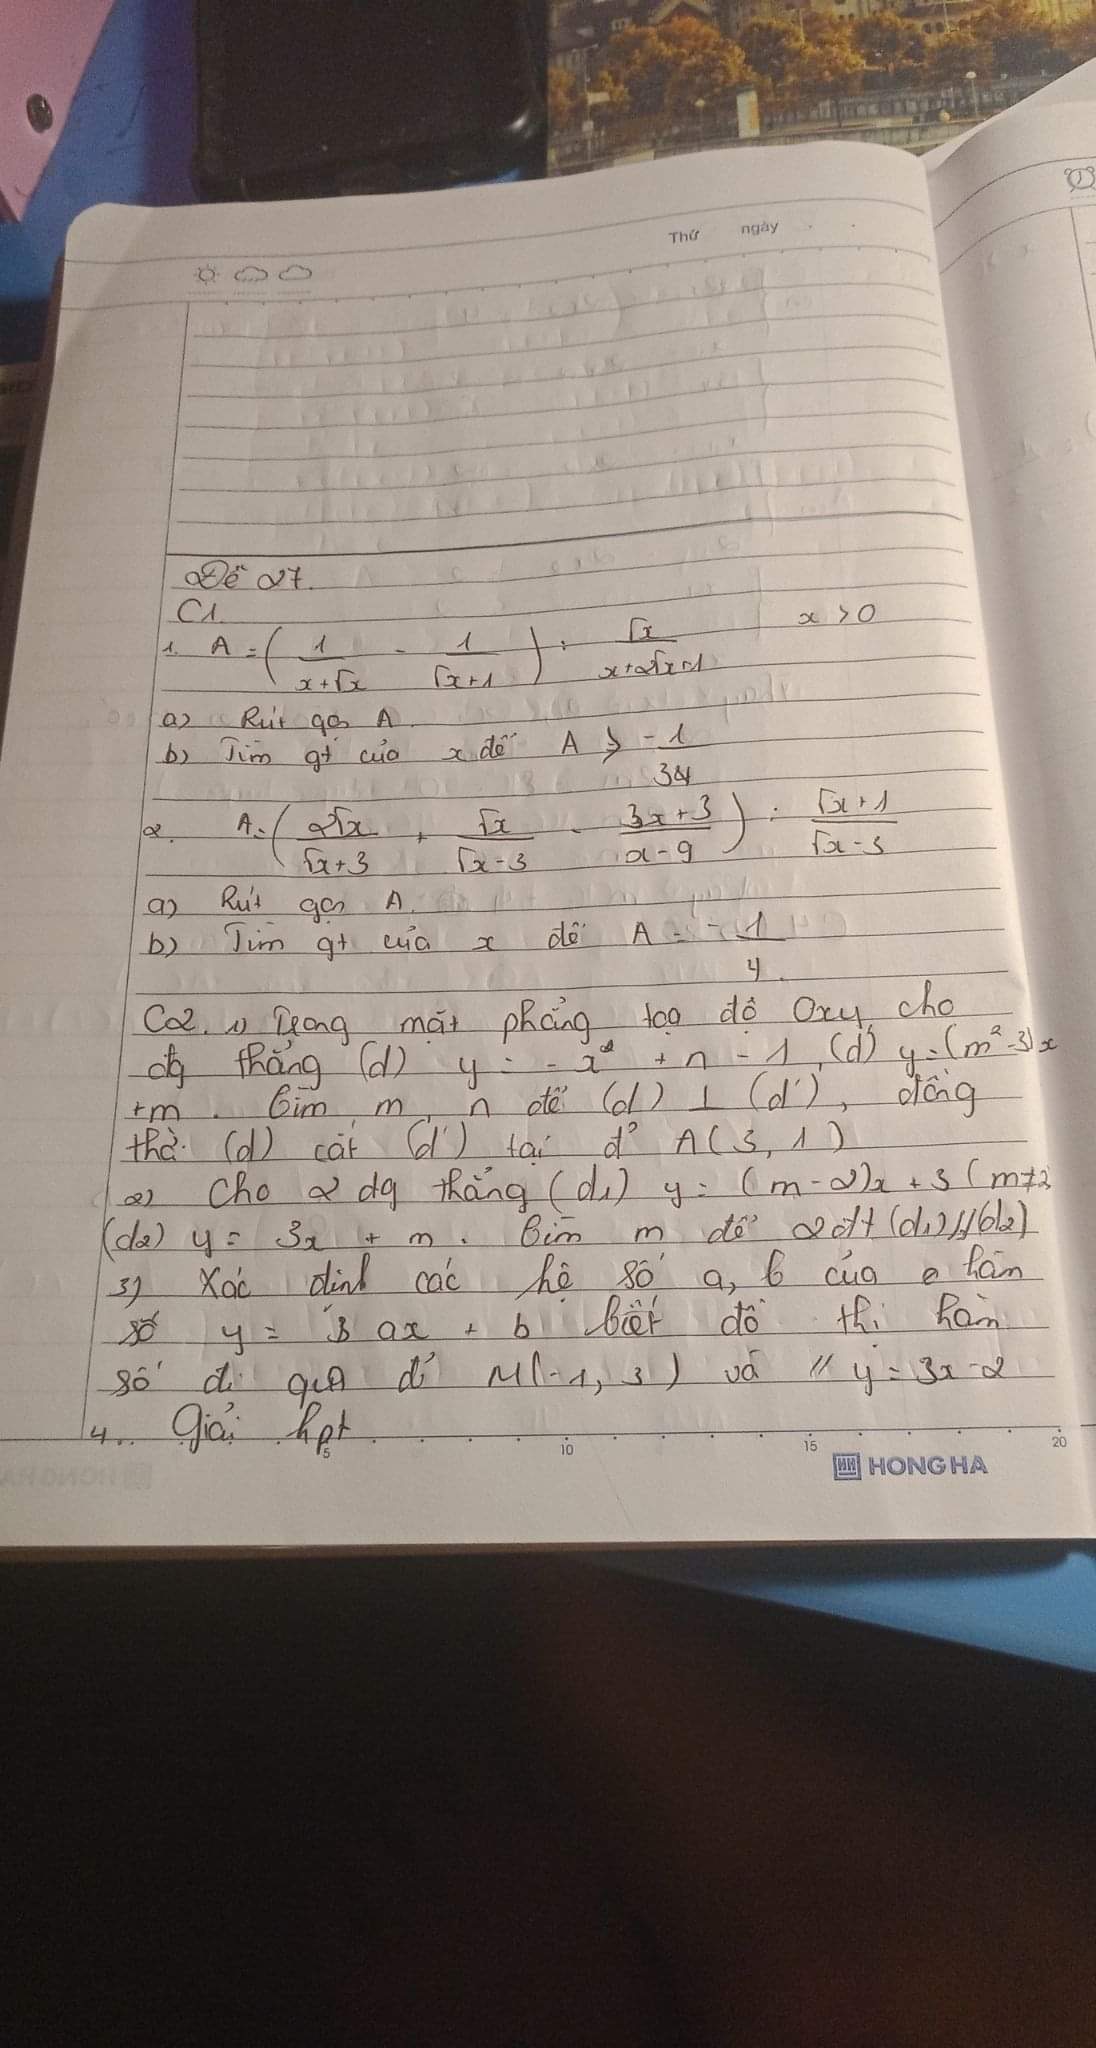 Thứ ngày
Đề 27.
C1.
1. A = ( 1/(x+√x) - 1/(√x+1) ) : √x/(x+2√x+1) x > 0
a) Rút gọn A.
b) Tìm gt của x để A > -1/
2. A = ( 2√x/(√x+3) + √x/(√x-3) - (3x+3)/(x-9) ) : (√x+1)/(√x-3)
a) Rút gọn A.
b) Tìm gt của x để A = -1/4.
C2. 1) Trong mặt phẳng toạ độ Oxy, cho
đg thẳng (d) y = - x + n - 1, (d') y = (m² - 3)x
+m. Tìm m, n để (d) ⊥ (d'), đồng
thờ: (d) cắt (d') tại đ' A(3, 1)
2) Cho 2 đg thẳng (d1) y = (m - 2)x + 3 (m≠2
(d2) y = 3x + m. Tìm m để 2đtt (d1)//(d2)
3) Xác định các hệ số a, b của hàm
số y = ax + b biết đồ thị hàm
số đi qua đ' M(-1, 3) và // y = 3x - 2
4. Giải hpt
5 10 15 20
HH HONG HA